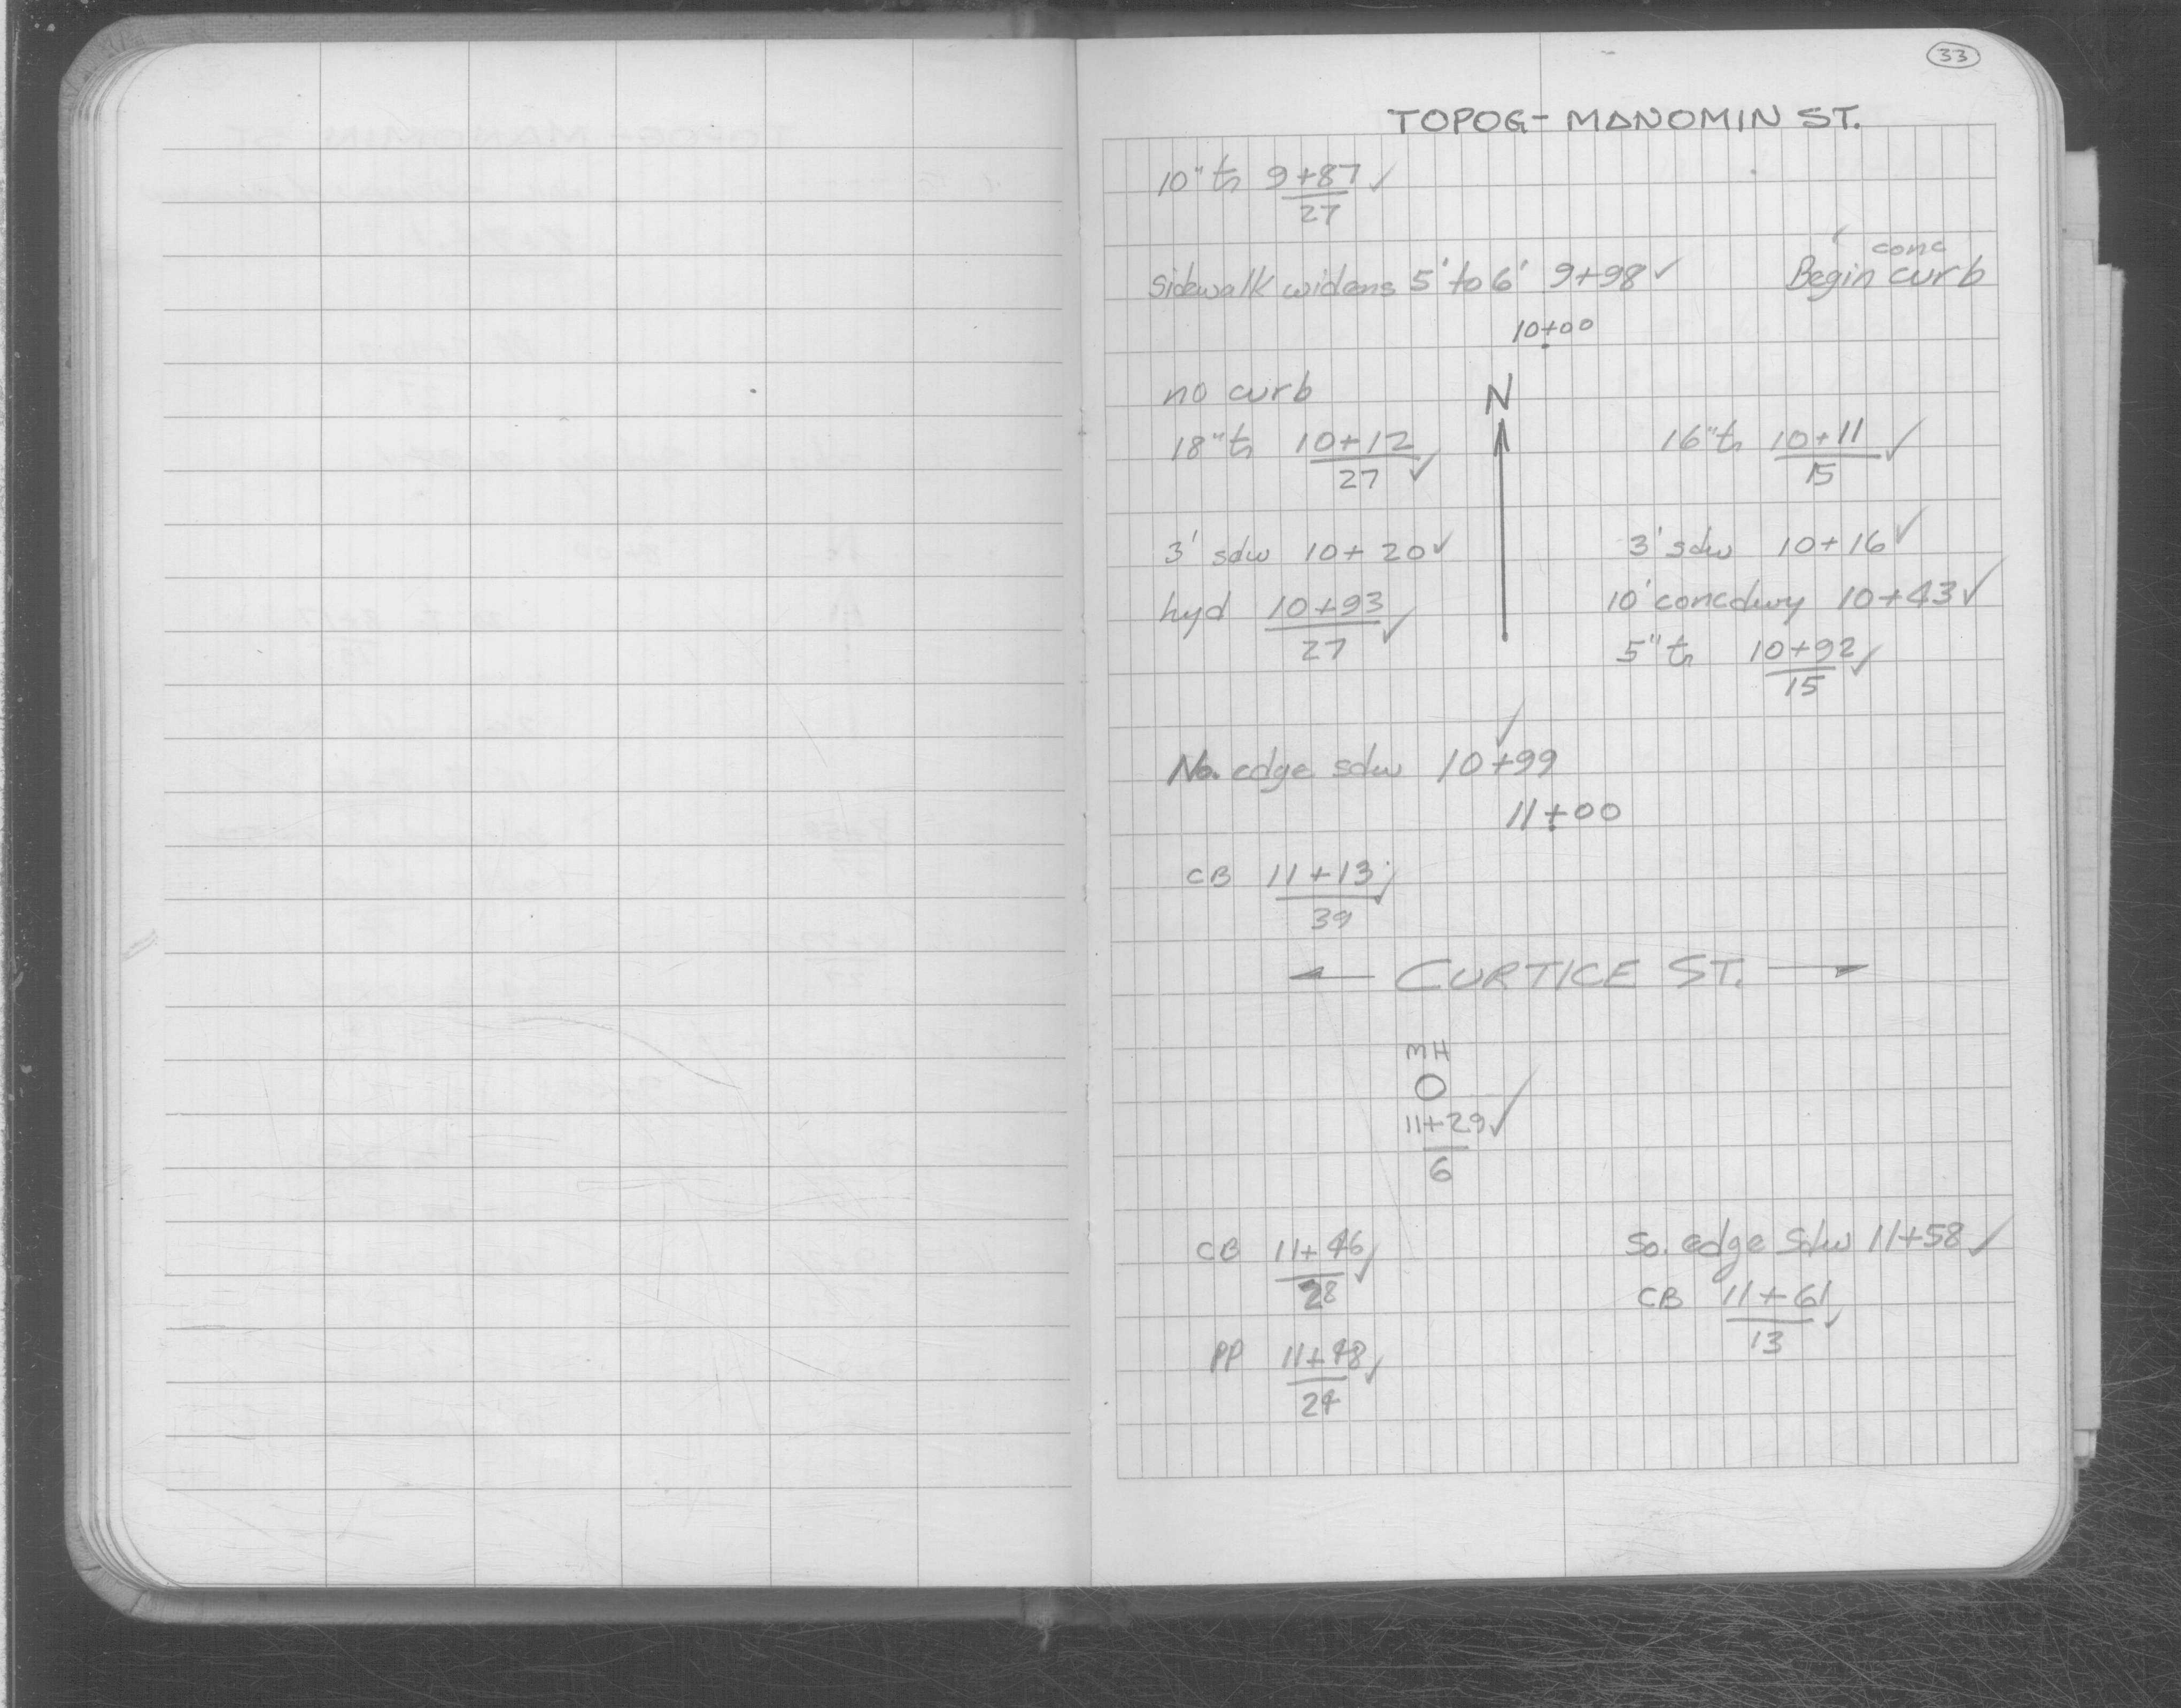 33
TOPOG- MANOMIN ST.
10" tr 9+87 ✓
27
conc
Sidewalk widens 5' to 6' 9+98 ✓ Begin curb
10+00
no curb N
18" tr 10+12 ✓ 16" tr 10+11 ✓
27 15
3' sdw 10+20 ✓ 3' sdw 10+16 ✓
hyd 10+93 ✓ 10' conc dwy 10+43 ✓
27 5" tr 10+92 ✓
15
No. edge sdw 10+99 ✓
11+00
CB 11+13 ✓
39
← CURTICE ST. →
MH
O
11+29 ✓
6
CB 11+46 ✓ So. edge Sdw 11+58 ✓
28 CB 11+61 ✓
PP 11+48 ✓ 13
24